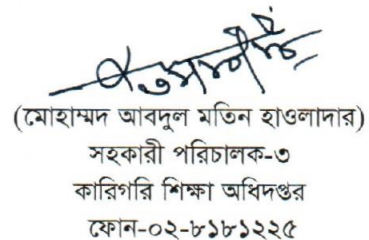 (মোহাম্মদ আবদুল মতিন হাওলাদার)
সহকারী পরিচালক-৩
কারিগরি শিক্ষা অধিদপ্তর
ফোন-০২-৮১৮১২২৫